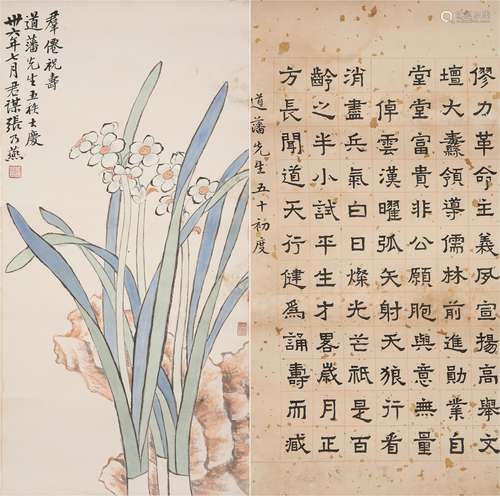 群僊祝壽
道藩先生五秩大慶
卅六年七月君謀張乃燕
僇力革命主義夙宣揚高舉文
壇大纛領導儒林前進勛業自
堂堂富貴非公願胞與意無量
倬雲漢曜弧矢射天狼行看
消盡兵氣白日燦光芒祇是百
齡之半小試平生才畧歲月正
方長聞道天行健爲誦壽而臧
道藩先生五十初度